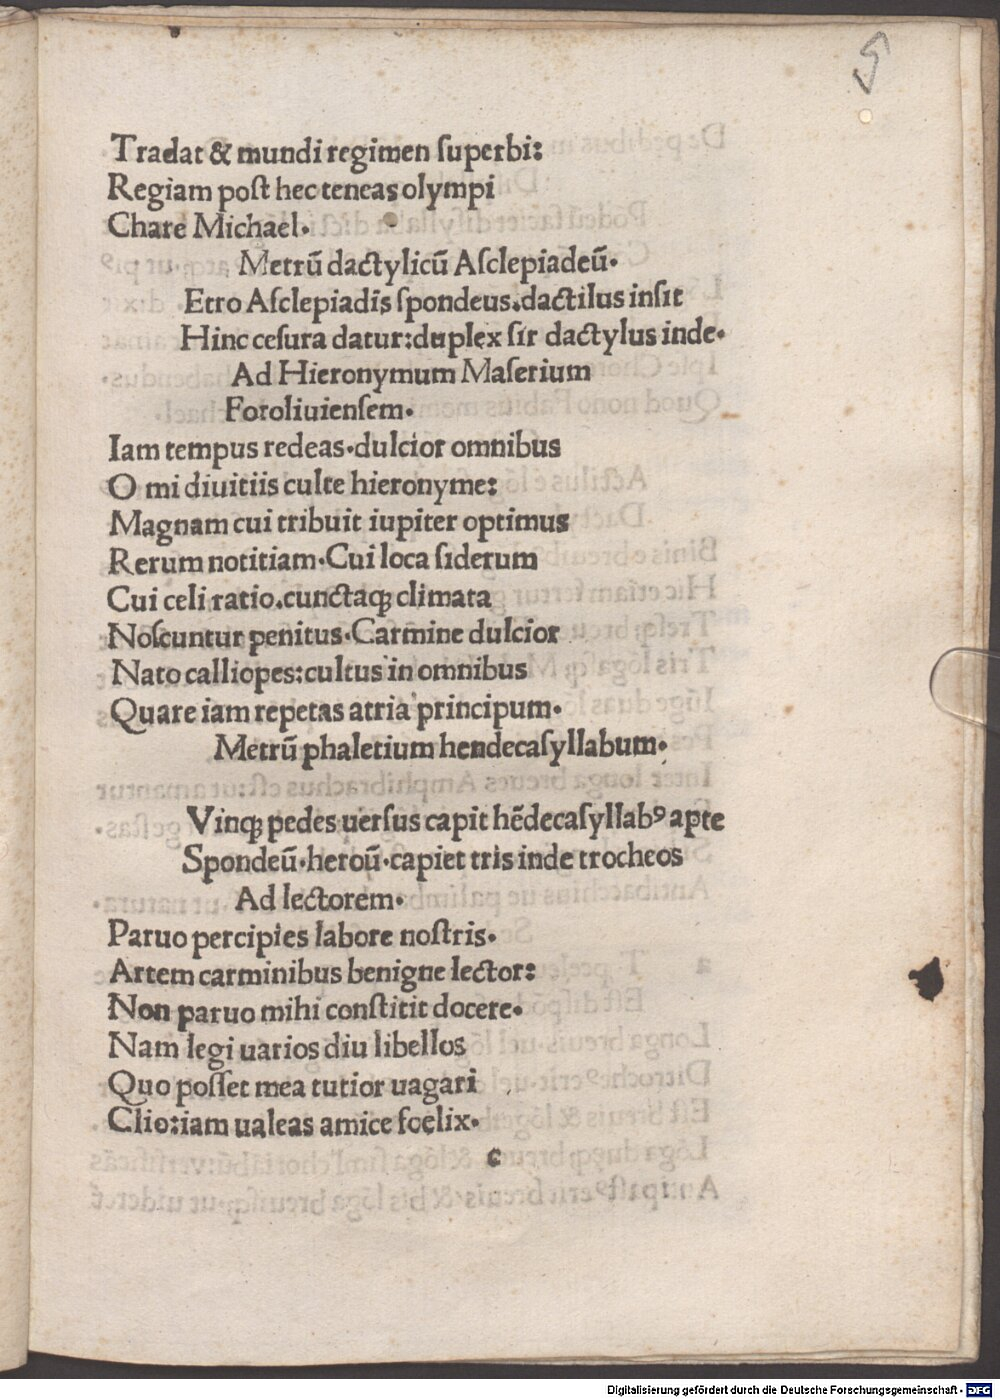 9
Tradat & mundi regimen ſuperbi:
Regiam poſt hec teneas olympi
Chare Michael.
Metrū dactylicū Aſclepiadeū.
Etro Aſclepiadis ſpondeus.dactilus inſit
Hinc ceſura datur:duplex ſit dactylus inde.
Ad Hieronymum Maſerium
Foroliuienſem.
Iam tempus redeas.dulcior omnibus
O mi diuitiis culte hieronyme:
Magnam cui tribuit iupiter optimus
Rerum notitiam.Cui loca ſiderum
Cui celi ratio.cunctaqꝫ climata
Noſcuntur penitus.Carmine dulcior
Nato calliopes:cultus in omnibus
Quare iam repetas atria principum.
Metrū phaletium hendecaſyllabum.
Vinqꝫ pedes uerſus capit hēdecaſyllabꝰ apte
Spondeū.heroū.capiet tris inde trocheos
Ad lectorem.
Paruo percipies labore noſtris.
Artem carminibus benigne lector:
Non paruo mihi conſtitit docere.
Nam legi uarios diu libellos
Quo poſſet mea tutior uagari
Clio:iam ualeas amice foelix.
c
Digitalisierung gefördert durch die Deutsche Forschungsgemeinschaft - DFG